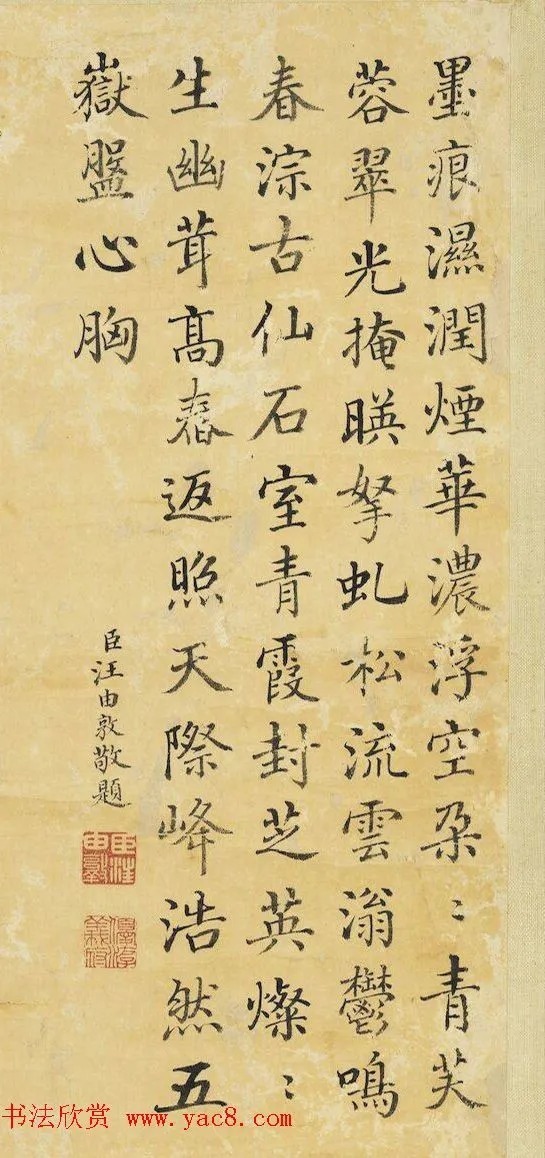 墨痕濕潤煙華濃浮空朶〻青芙
蓉翠光掩暎拏虬松流雲滃鬱鳴
春淙古仙石室青霞封芝英燦〻
生幽茸髙舂返照天際峰浩然五
嶽盪心胸
臣汪由敦敬題
臣汪由敦
书法欣赏 www.yac8.com